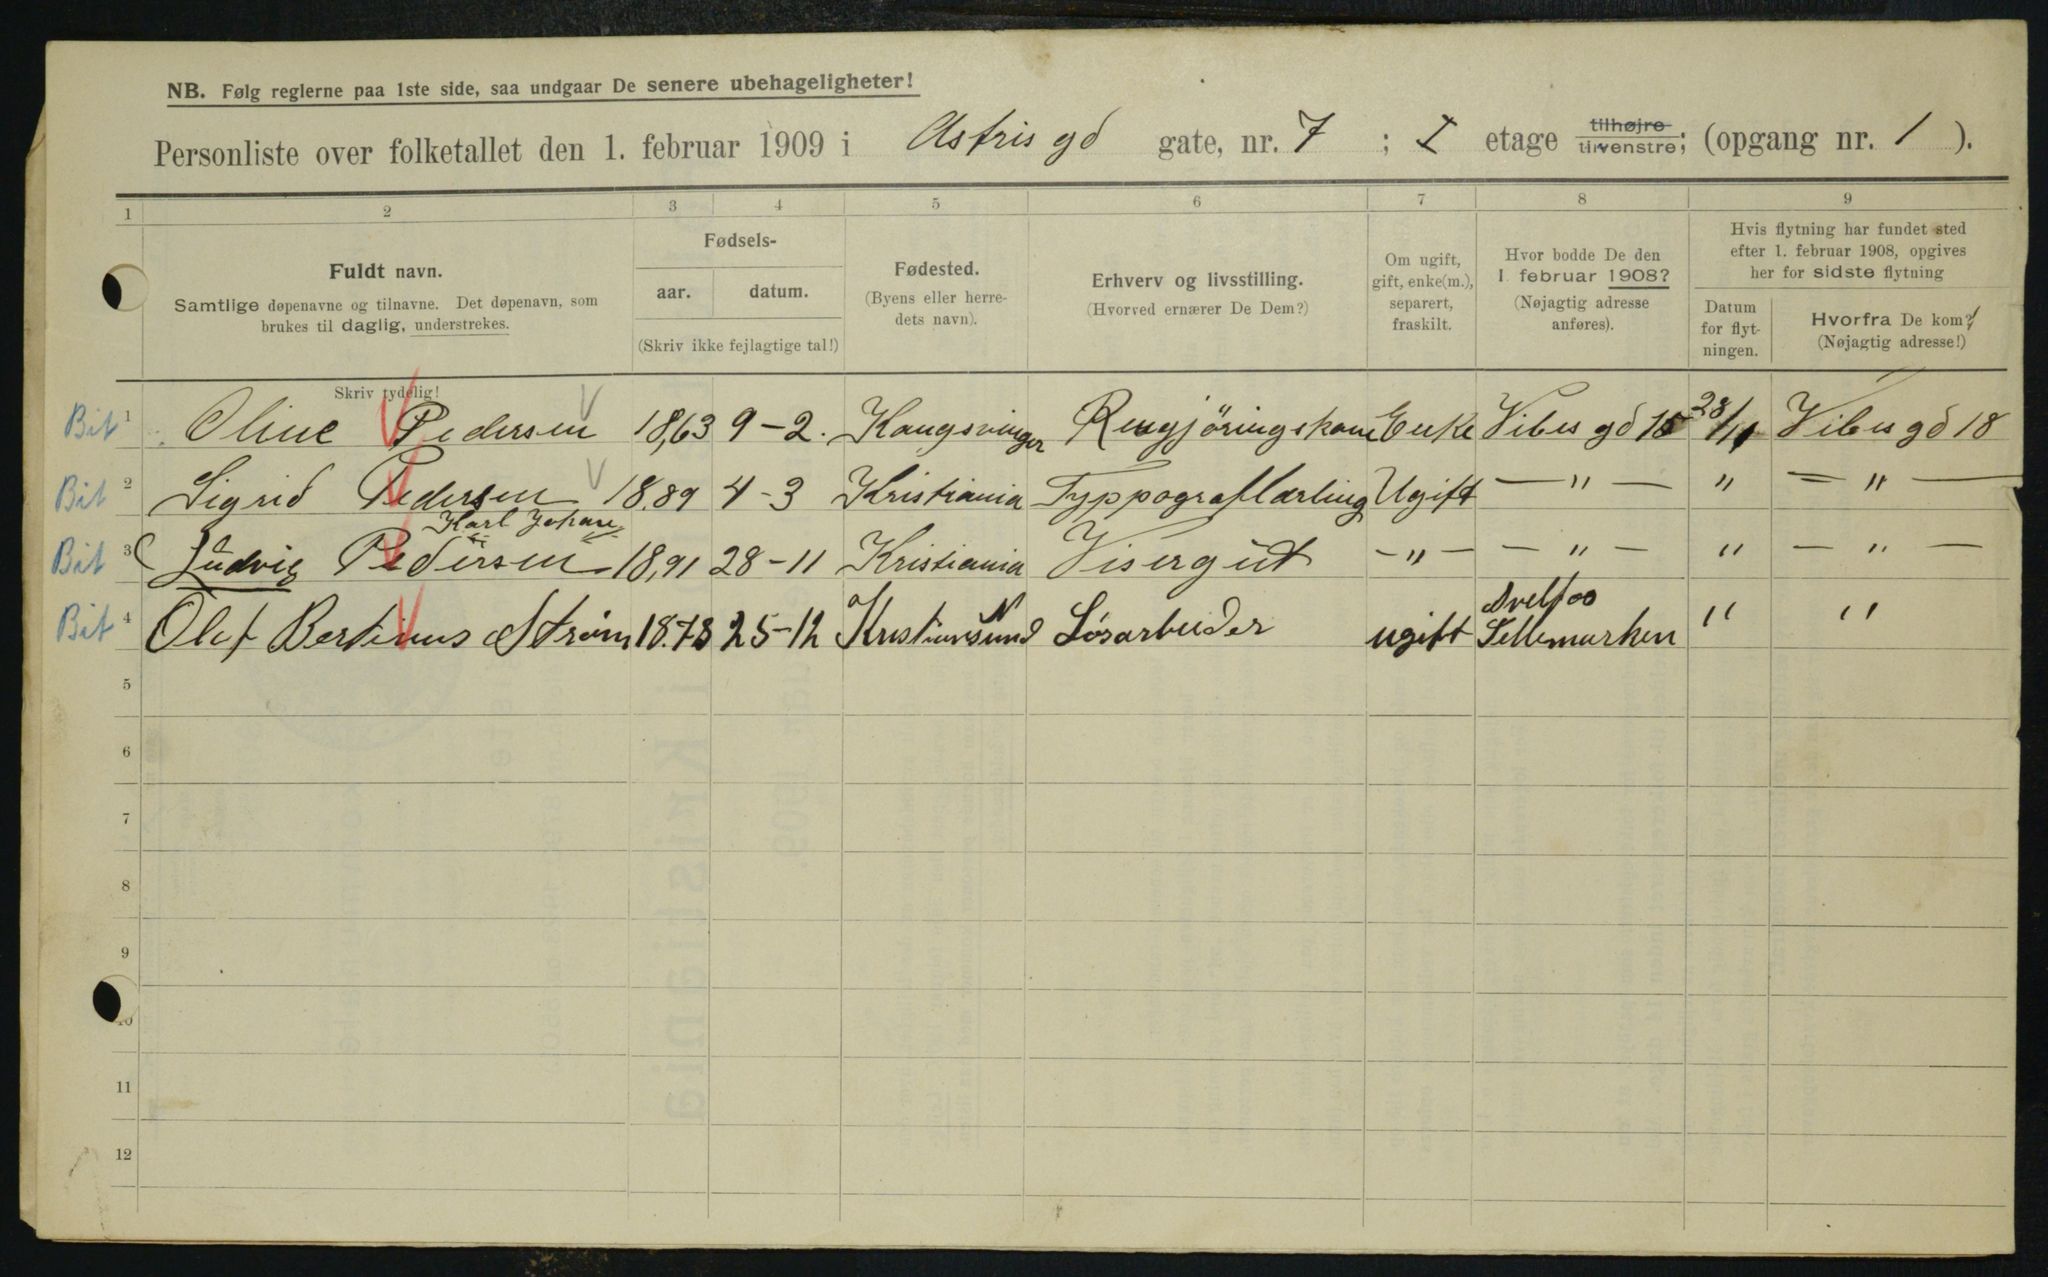 NB. Følg reglerne paa 1ste side, saa undgaar De senere ubehageligheter!
Personliste over folketallet den 1. februar 1909 i Astris gd gate, nr. 7 ; I etage tilhøjre tilvenstre; (opgang nr. 1 ).
1 2 3 4 5 6 7 8 9
Fuldt navn.
Samtlige døpenavne og tilnavne. Det døpenavn, som
brukes til daglig, understrekes.
Skriv tydelig!
Fødsels-
aar. datum.
(Skriv ikke fejlagtige tal!)
Fødested.
(Byens eller herre-
dets navn).
Erhverv og livsstilling.
(Hvorved ernærer De Dem?)
Om ugift,
gift, enke(m.),
separert,
fraskilt.
Hvor bodde De den
1. februar 1908?
(Nøjagtig adresse
anføres).
Hvis flytning har fundet sted
efter 1. februar 1908, opgives
her for sidste flytning
Datum
for flyt-
ningen.
Hvorfra De kom?
(Nøjagtig adresse!)
Bit 1 Oline Pedersen 18,63 9-2. Kongsvinger Rengjöringskone Enke Vibes gd 18 28/11 Vibes gd 18
Bit 2 Sigrid Pedersen 18.89 4-3 Kristiania Typpograflærling Ugift — " — " — " —
Karl Johan
Bit 3 Ludvig Pedersen 18,91 28-11 Kristiania Visergut — " — — " — " — " —
Bit 4 Olaf Bertinus Strøm 18.78 25-12 Kristiansund N Løsarbeider ugift Svelfos Tellemarken " "
5
6
7
8
9
10
11
12